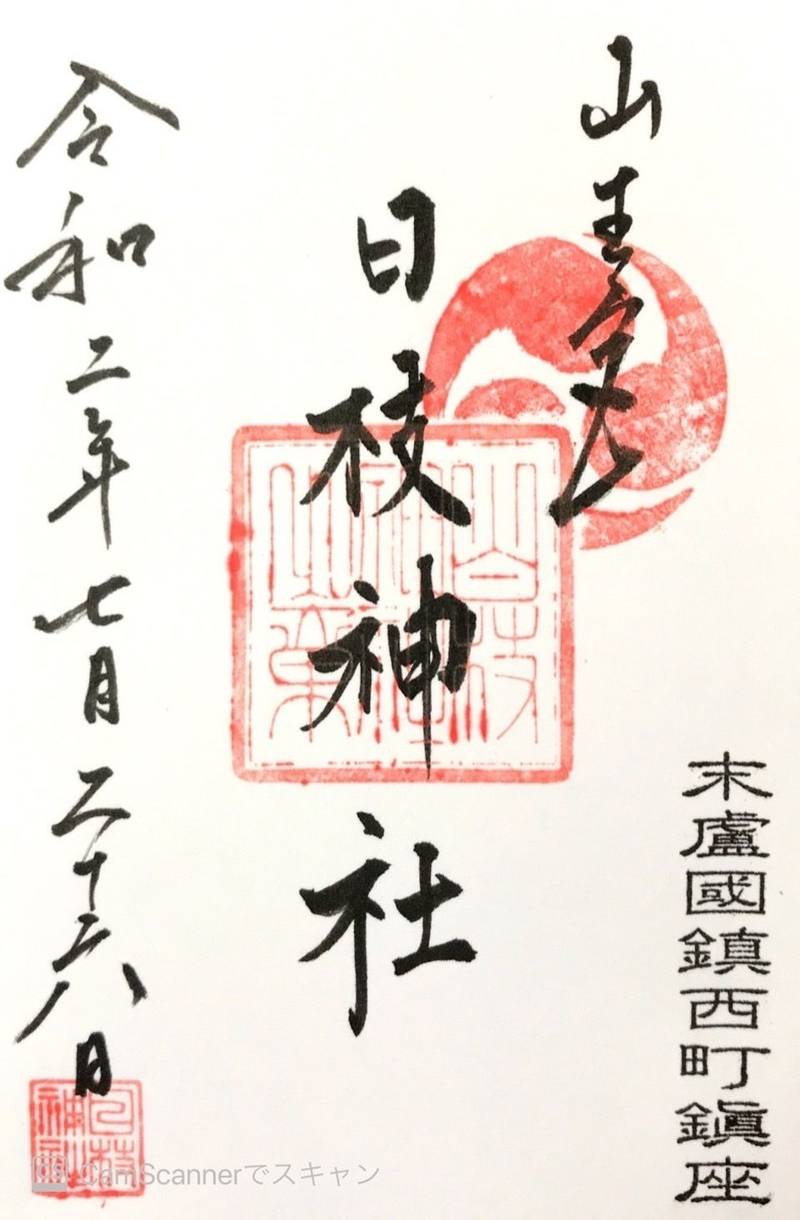 山王
日枝神社
末盧國鎮西町鎭座
令和二年七月二十六日
CamScannerでスキャン